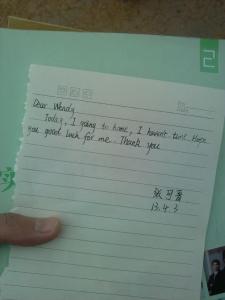 2
Dear Wendy
Today, I going to home, I haven't time. Hope
you good luck for me. Thank you
张
13.4.3
实